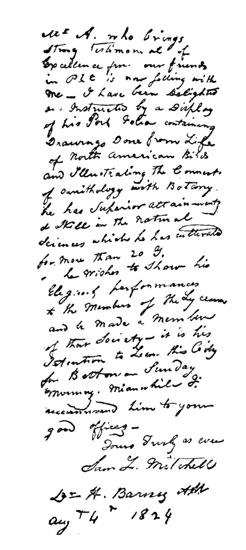 Mr A. who brings
strong Testimonial of
Excellence from our friends
in Phe is now sitting with
me — I have been Delighted
& Instructed by a Display
of his Port Folio containing
Drawings Done from Life
of North American Birds
and Illustrating the Connexn
of ornithology with Botany.
he has Superior attainments
& Skill in the Natural
Sciences which he has cultivated
for more than 20 Y.
he Wishes to Show his
Elegant performances
to the Members of the Lyceum
and be made a Member
of that Society — it is his
Intention to Leave this City
for Boston on Sunday
Morning. Meanwhile I
recommend him to your
good offices —
Yours Truly as ever
Sam L. Mitchell
Dr H. Barnes
Augt 4th 1824